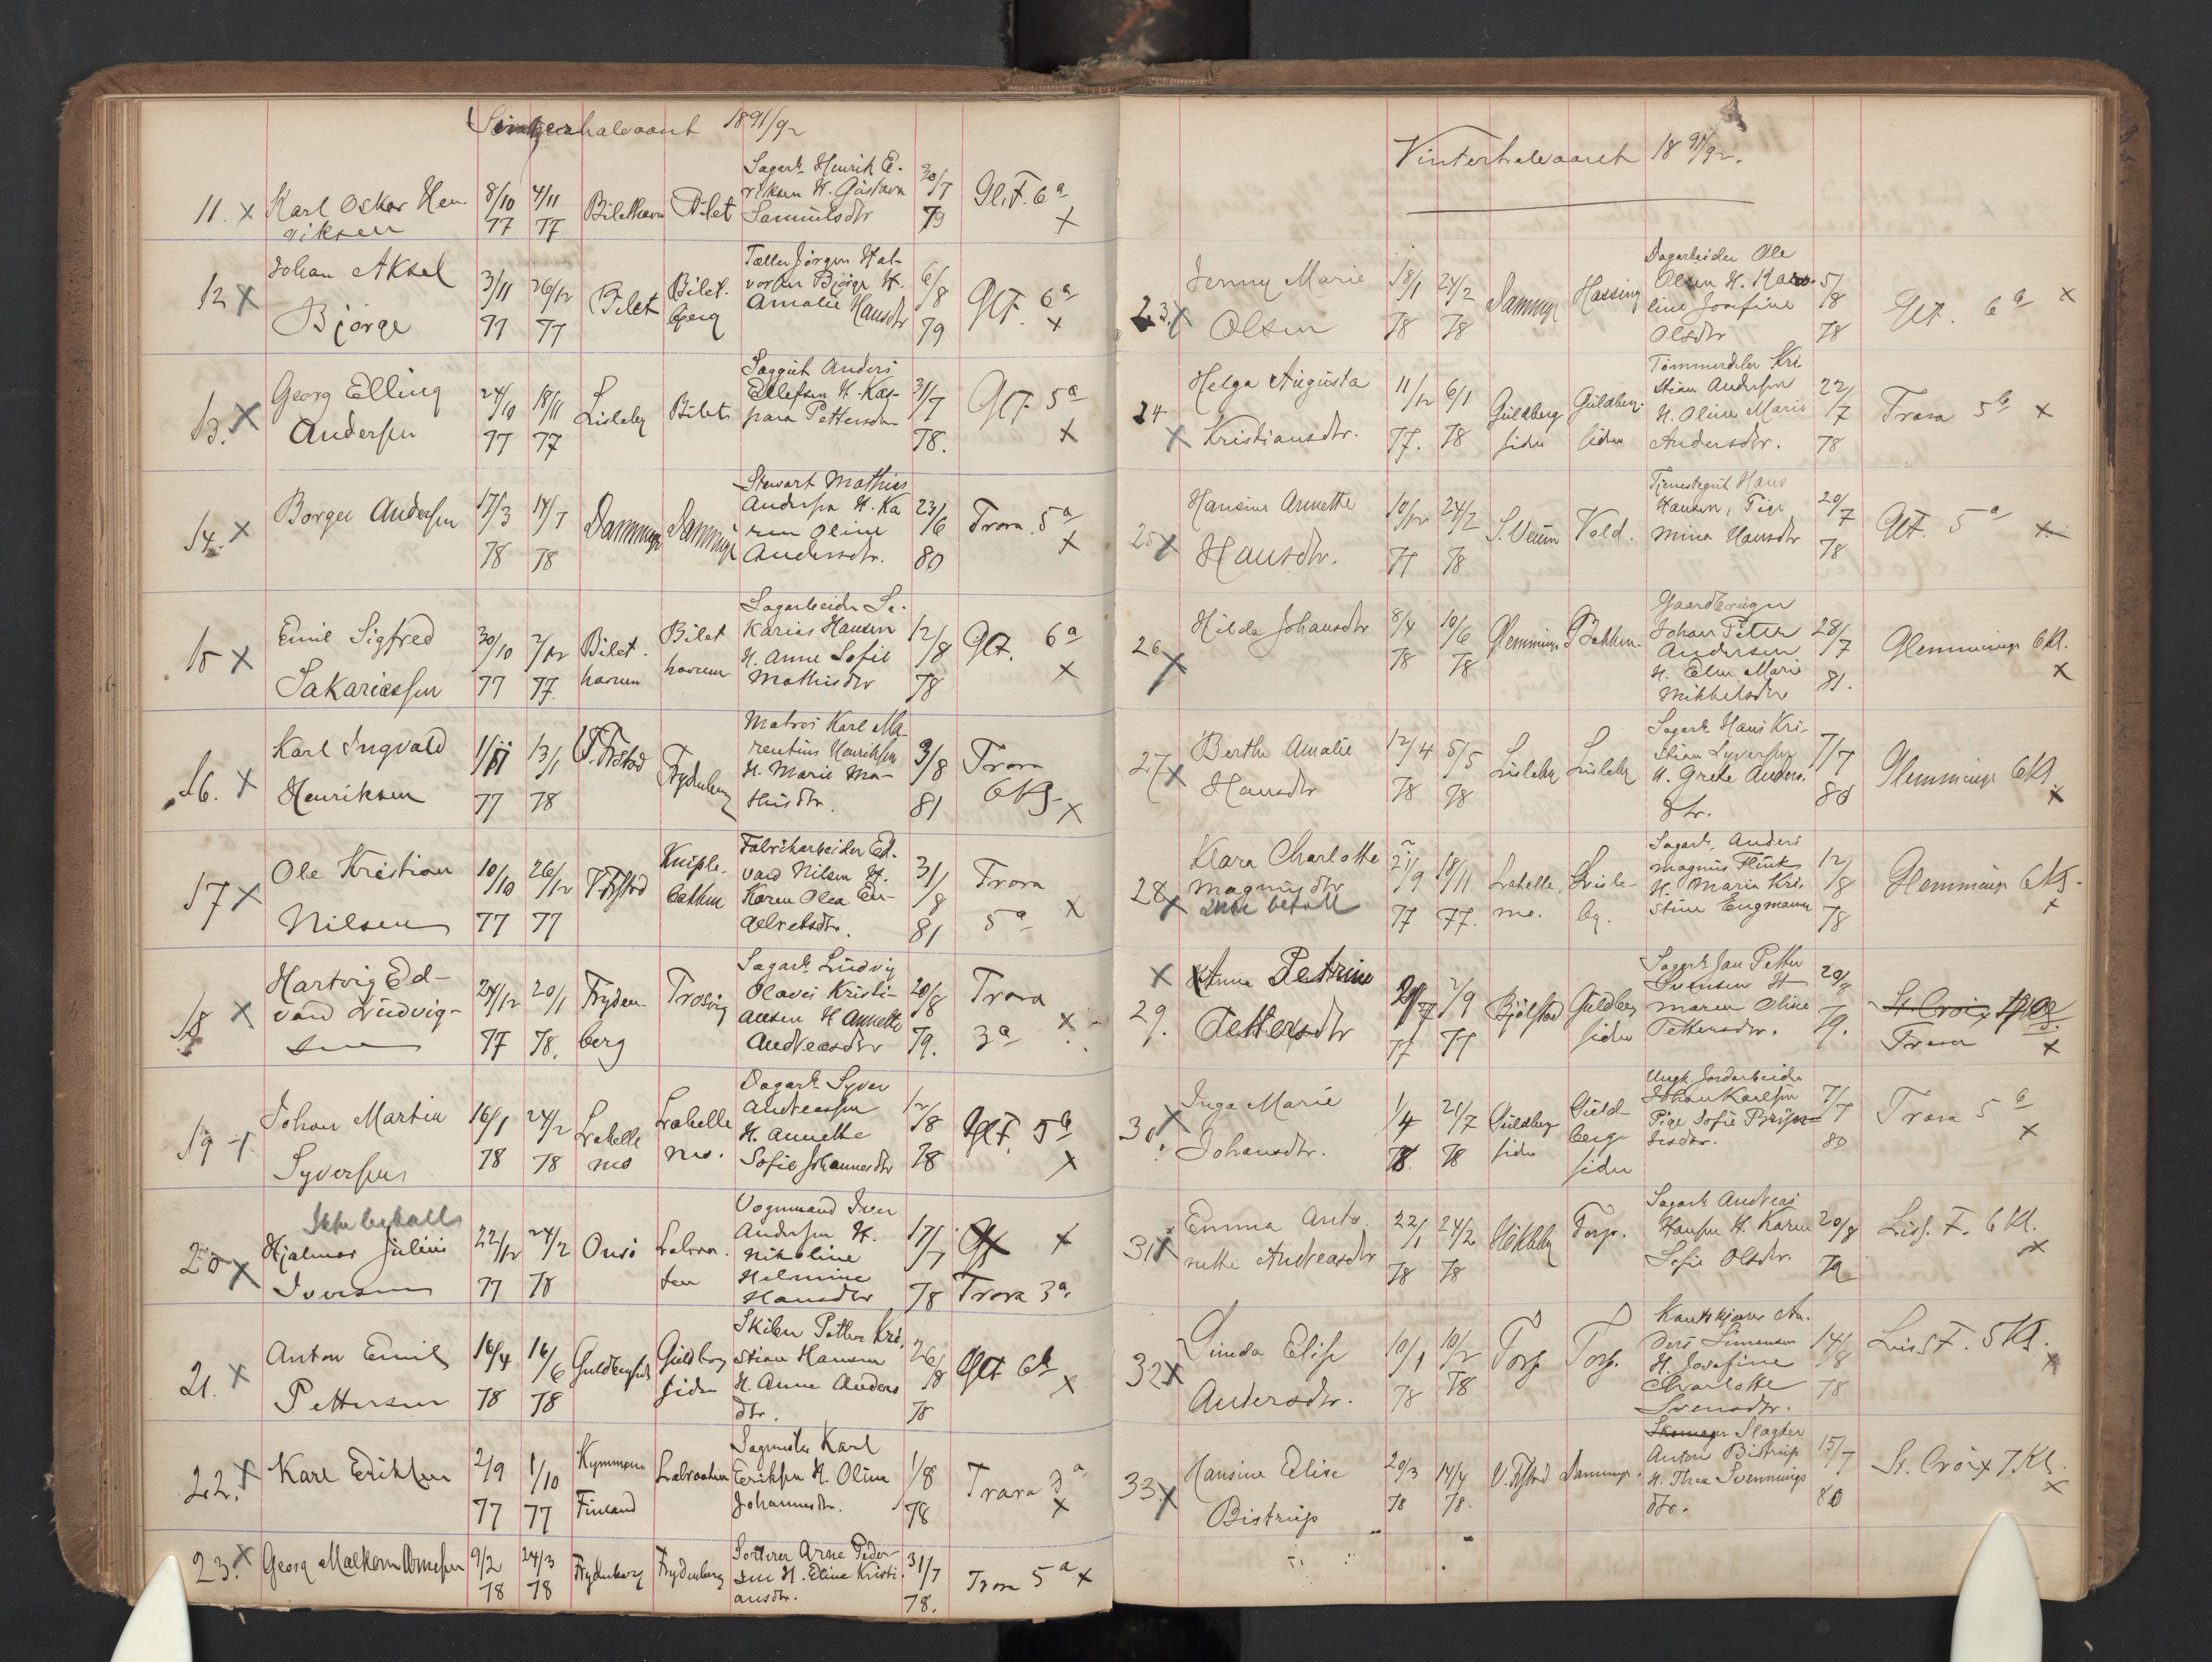 halvaaret 1891/92
11. x Karl Oskar Hen-
riksen
8/10 77 4/11 77 Bilethavn Bilet
Sagarb. Henrik E-
riksen H. Gustava
Samuelsdtr
30/7 79 Gl.F. 6a x
12 x Johan Aksel
Bjørge
3/11 77 26/12 77 Bilet Bilet-
berg
Tæller Jørgen Hal-
vorsen Bjørge H.
Amalie Hansdtr
6/8 79 Gl.F. 6a x
13. x Georg Elling
Andersen
24/10 77 18/11 77 Lisleby Bilet
Saggut Anders
Ellefsen H. Kas-
para Pettersdtr
31/7 78. Gl.F. 5a x
14. x Borger Andersen
17/3 78 14/7 78 Damminge Damminge
Stewart Mathias
Andersen H. Ka
ren Oline
Andersdtr.
23/6 80 Trara 5a x
15 x Emil Sigfred
Sakariassen
30/10 77 2/12 77. Bilet-
havnen Bilet
havnen
Sagarbeider Sa-
karias Hansen
H. Anne Sofie
Mathisdtr
12/8 78 Gl.F. 6a x
16. x Karl Ingvald
Henriksen
1/11 77 13/1 78 V. Frstad Frydenberg
Matros Karl Ma-
rentius Henriksen
H. Marie Ma-
thisdtr.
3/8 81 Trara
6 Kl. x
17 x Ole Kristian
Nilsen
10/10 77 26/12 77 V. Frstad Kniple-
bakken
Fabrikarbeider Ed-
vard Nilsen H.
Karen Olea En-
gelbretsdtr.
31/8 81 Trara
5a x
18 x Hartvig Ed-
vard Ludvig-
sen
24/12 77 20/1 78. Fryden-
berg Trosvig
Sagarb. Ludvig
Olaves Kristi-
ansen H Annette
Andreasdtr
20/8 79. Trara
3a x
19 Johan Martin
Syversen
16/1 78 24/2 78 Labelle
mo Labelle
mo.
Dagarb. Syver
Andreassen
H. Annette
Sofie Johannesdtr
12/8 78 Gl.F. 5b x
Ikke betalt
20 x Hjalmar Julius
Iversen
22/12 77 24/2 78 Onsø Labraa-
ten
Vognmand Iver
Andersen H.
Nikoline
Helmine
Hansdtr
17/7 78 x
Trara 3a.
21. x Anton Emil
Pettersen
16/4 78 16/6 78 Guldbergsid Guldberg
siden
Skiben Petter Kri-
stian Hansen
H. Anne Anders
dtr.
26/8 78 Gl.F. 6b x
22. x Karl Eriksen
2/9 77 1/10 77 Kymmene
Finland Labraaten
Sagmester Karl
Eriksen H. Oline
Johannesdtr.
1/8 78 Trara 3a x
23. x Georg Malkom Arnesen
9/2 78 24/3 78 Frydenberg Frydenberg
Sorterer Arne Peder-
sen H. Eline Kristi-
ansdtr.
31/7 78. Trara 5a x
Vinterhalvaaret 1891/92.
23. x Jenny Marie
Olsen
18/1 78 24/2 78 Damminge Hassing
Dagarbeider Ole
Olsen H. Karo-
line Josefine
Olsdtr
5/8 78 Gl.F. 6a x
24 x Helga Augusta
Kristiansdtr.
11/12 77. 6/1 78 Guldberg
siden Guldberg-
siden
Tømmerdeler Kri-
stian Andersen
H. Oline Marie
Andersdtr.
22/7 78 Trara 5b x
25 x Hansine Annette
Hansdtr.
10/12 77 24/2 78 S. Veum Vold.
Tjenestegut Hans
Hansen, Pige
Mina Hansdtr
20/7 78 Gl.F. 5a x
26 x Hilda Johansdtr
8/4 78 10/6 78 Glemminge Bakken
Gaardbruger
Johan Peter
Andersen
H. Elen Marie
Mikkelsdtr
28/7 81. Glemminge 6 Kl. x
27 x Berthe Amalie
Hansdtr
12/4 78 5/5 78 Lisleby Lisleby
Sagarb. Hans Kri-
stian Syversen
H. Grete Anders-
dtr.
7/7 80 Glemminge 6 Kl. x
28 x Klara Charlotte
Magnusdtr
Ikke betalt
21/9 77 18/11 77. Labelle-
mo. Lisle-
by.
Sagarb. Anders
Magnus Flink
H. Maria Kri-
stine Engmann
12/8 78 Glemminge 6 Kl. x
x Anna Petrine
29. Pettersdtr
77 2/9 77 Kjølstad Guldberg
siden
Sagarb. Jan Petter
Svensen H
Maren Oline
Pettersdtr.
79. St. Croix
Trara x
30 x Inga Marie
Johansdtr.
1/4 78. 21/7 78 Guldberg
siden Guld-
berg-
siden
Ungk. Jordarbeider
Johan Karlsen
Pige Sofie
7/7 80 Trara 5b x
31 x Emma Anto-
nette Andreasdtr
22/1 78 24/2 78 Torp.
Sagarb. Andreas
Hansen H. Karen
Sofie Olsdtr.
20/8 79 Lisl. F. 6 Kl. x
32 x Linda Elise
Andersdtr.
10/1 78 10/2 78 Torp Torp.
An-
ders Simensen
H. Josefine
Charlotte
Svensdtr.
14/8 78 Lisl F. 5 Kl. x
33 x Hansine Elise
Bistrup
20/3 78 14/4 78. V. Frstad Damminge.
Slagter
Anton Bistrup
H. Thea Svennings
dtr.
15/7 80 St. Croix 7. Kl. x